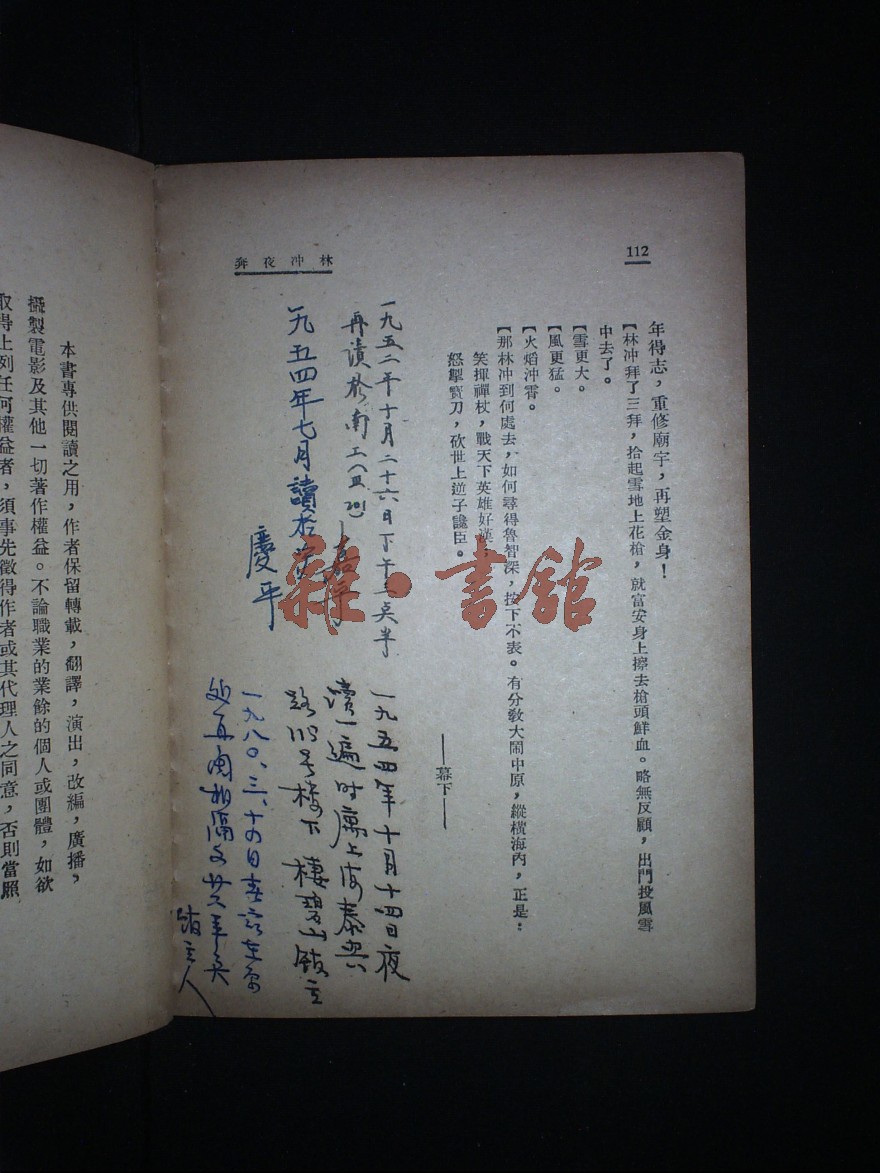 112
林冲夜奔
年得志，重修廟宇，再塑金身！
【林冲拜了三拜，拾起雪地上花槍，就富安身上擦去槍頭鮮血。略無反顧，出門投風雪
中去了。
【雪更大。
【風更猛。
【火熖沖霄。
【那林冲到何處去，如何尋得魯智深，按下不表。有分敎大鬧中原，縱橫海內，正是：
笑揮禪杖，戰天下英雄好漢；
怒掣寶刀，砍世上逆子讒臣。
——幕下——
一九五二年十月二十六日下午三点半
再讀於南工
一九五四年七月讀於
慶平
一九五四年十月十四日夜
讀一遍时寓上海泰興
路 号楼下 棲碧山館主
一九八〇、三、十 日
再 相隔 廿六年矣
館主人
雜·書館
本書專供閱讀之用，作者保留轉載，翻譯，演出，改編，廣播，
攝製電影及其他一切著作權益。不論職業的業餘的個人或團體，如欲
取得上列任何權益者，須事先徵得作者或其代理人之同意，否則當照